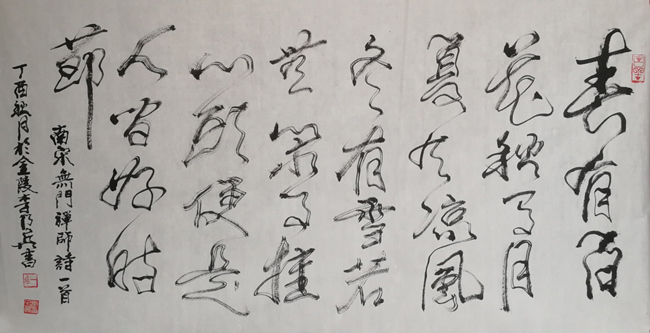 春有百
花秋有月
夏有凉風
冬有雪若
無閑事挂
心頭便是
人間好時
節
南泉無門禪師詩一首
丁酉秋月於金陵書